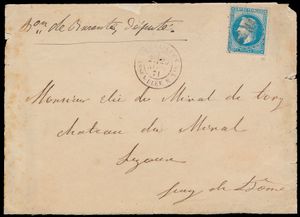 Bon de Barante, député
71
Monsieur élie du Miral de tony
chateau du Miral
Lezoux
puy de Dôme